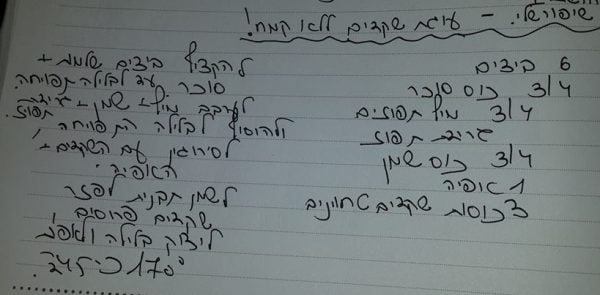 שיפורשלי. - עוגת שקדים ללא קמח!
6 ביצים
3/4 כוס סוכר
3/4 מיץ תפוזים
גרידת תפוז
3/4 כוס שמן
1 אפיה
3 כוסות שקדים טחונים
להקציף ביצים שלמות +
סוכר עד לבלילה תפוחה.
לערבב מיץ + שמן + גרידה תפוז.
ולהוסיף לבלילה התפוחה,
לסירוגין עם השקדים +
האפיה.
לשמן תבנית לפזר
שקדים פרוסים
ליצוק בלילה ולאפות
170° כ-45 דק'.